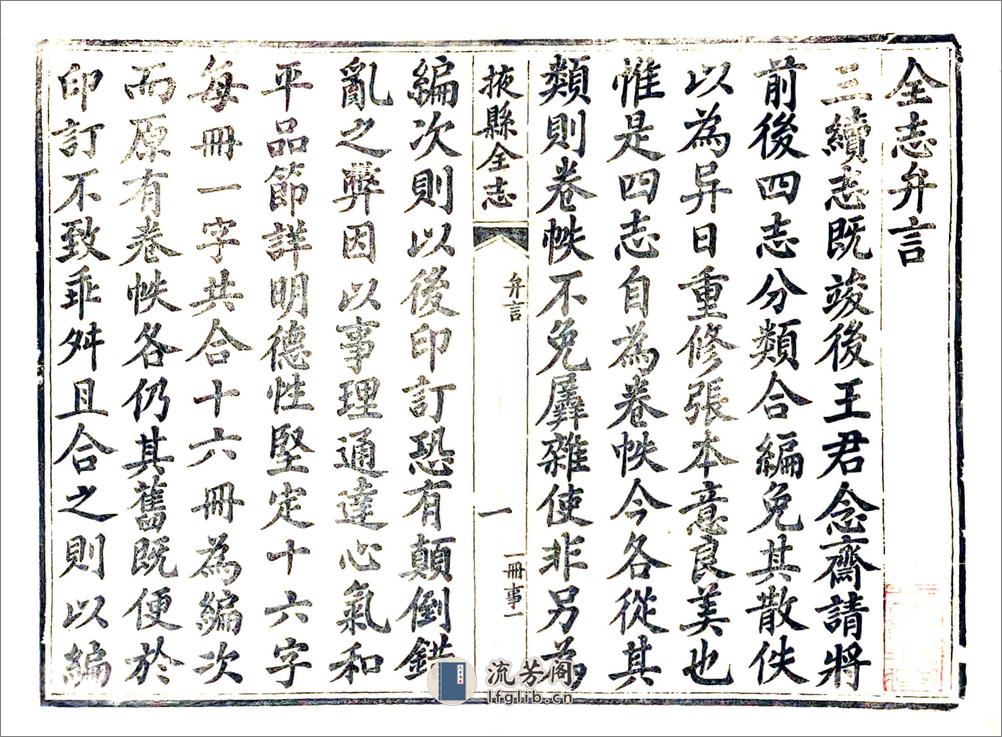 全志弁言
三續志既竣後王君念齋請將
前後四志分類合編免其散佚
以為异日重修張本意良美也
惟是四志自為卷帙今各從其
類則卷帙不免羼雜使非另為
掖縣全志 弁言 一 一冊事一
編次則以後印訂恐有顛倒錯
亂之弊因以事理通達心氣和
平品節詳明德性堅定十六字
每冊一字共合十六冊為編次
而原有卷帙各仍其舊既便於
印訂不致乖舛且合之則以編
流芳阁
lfglib.cn